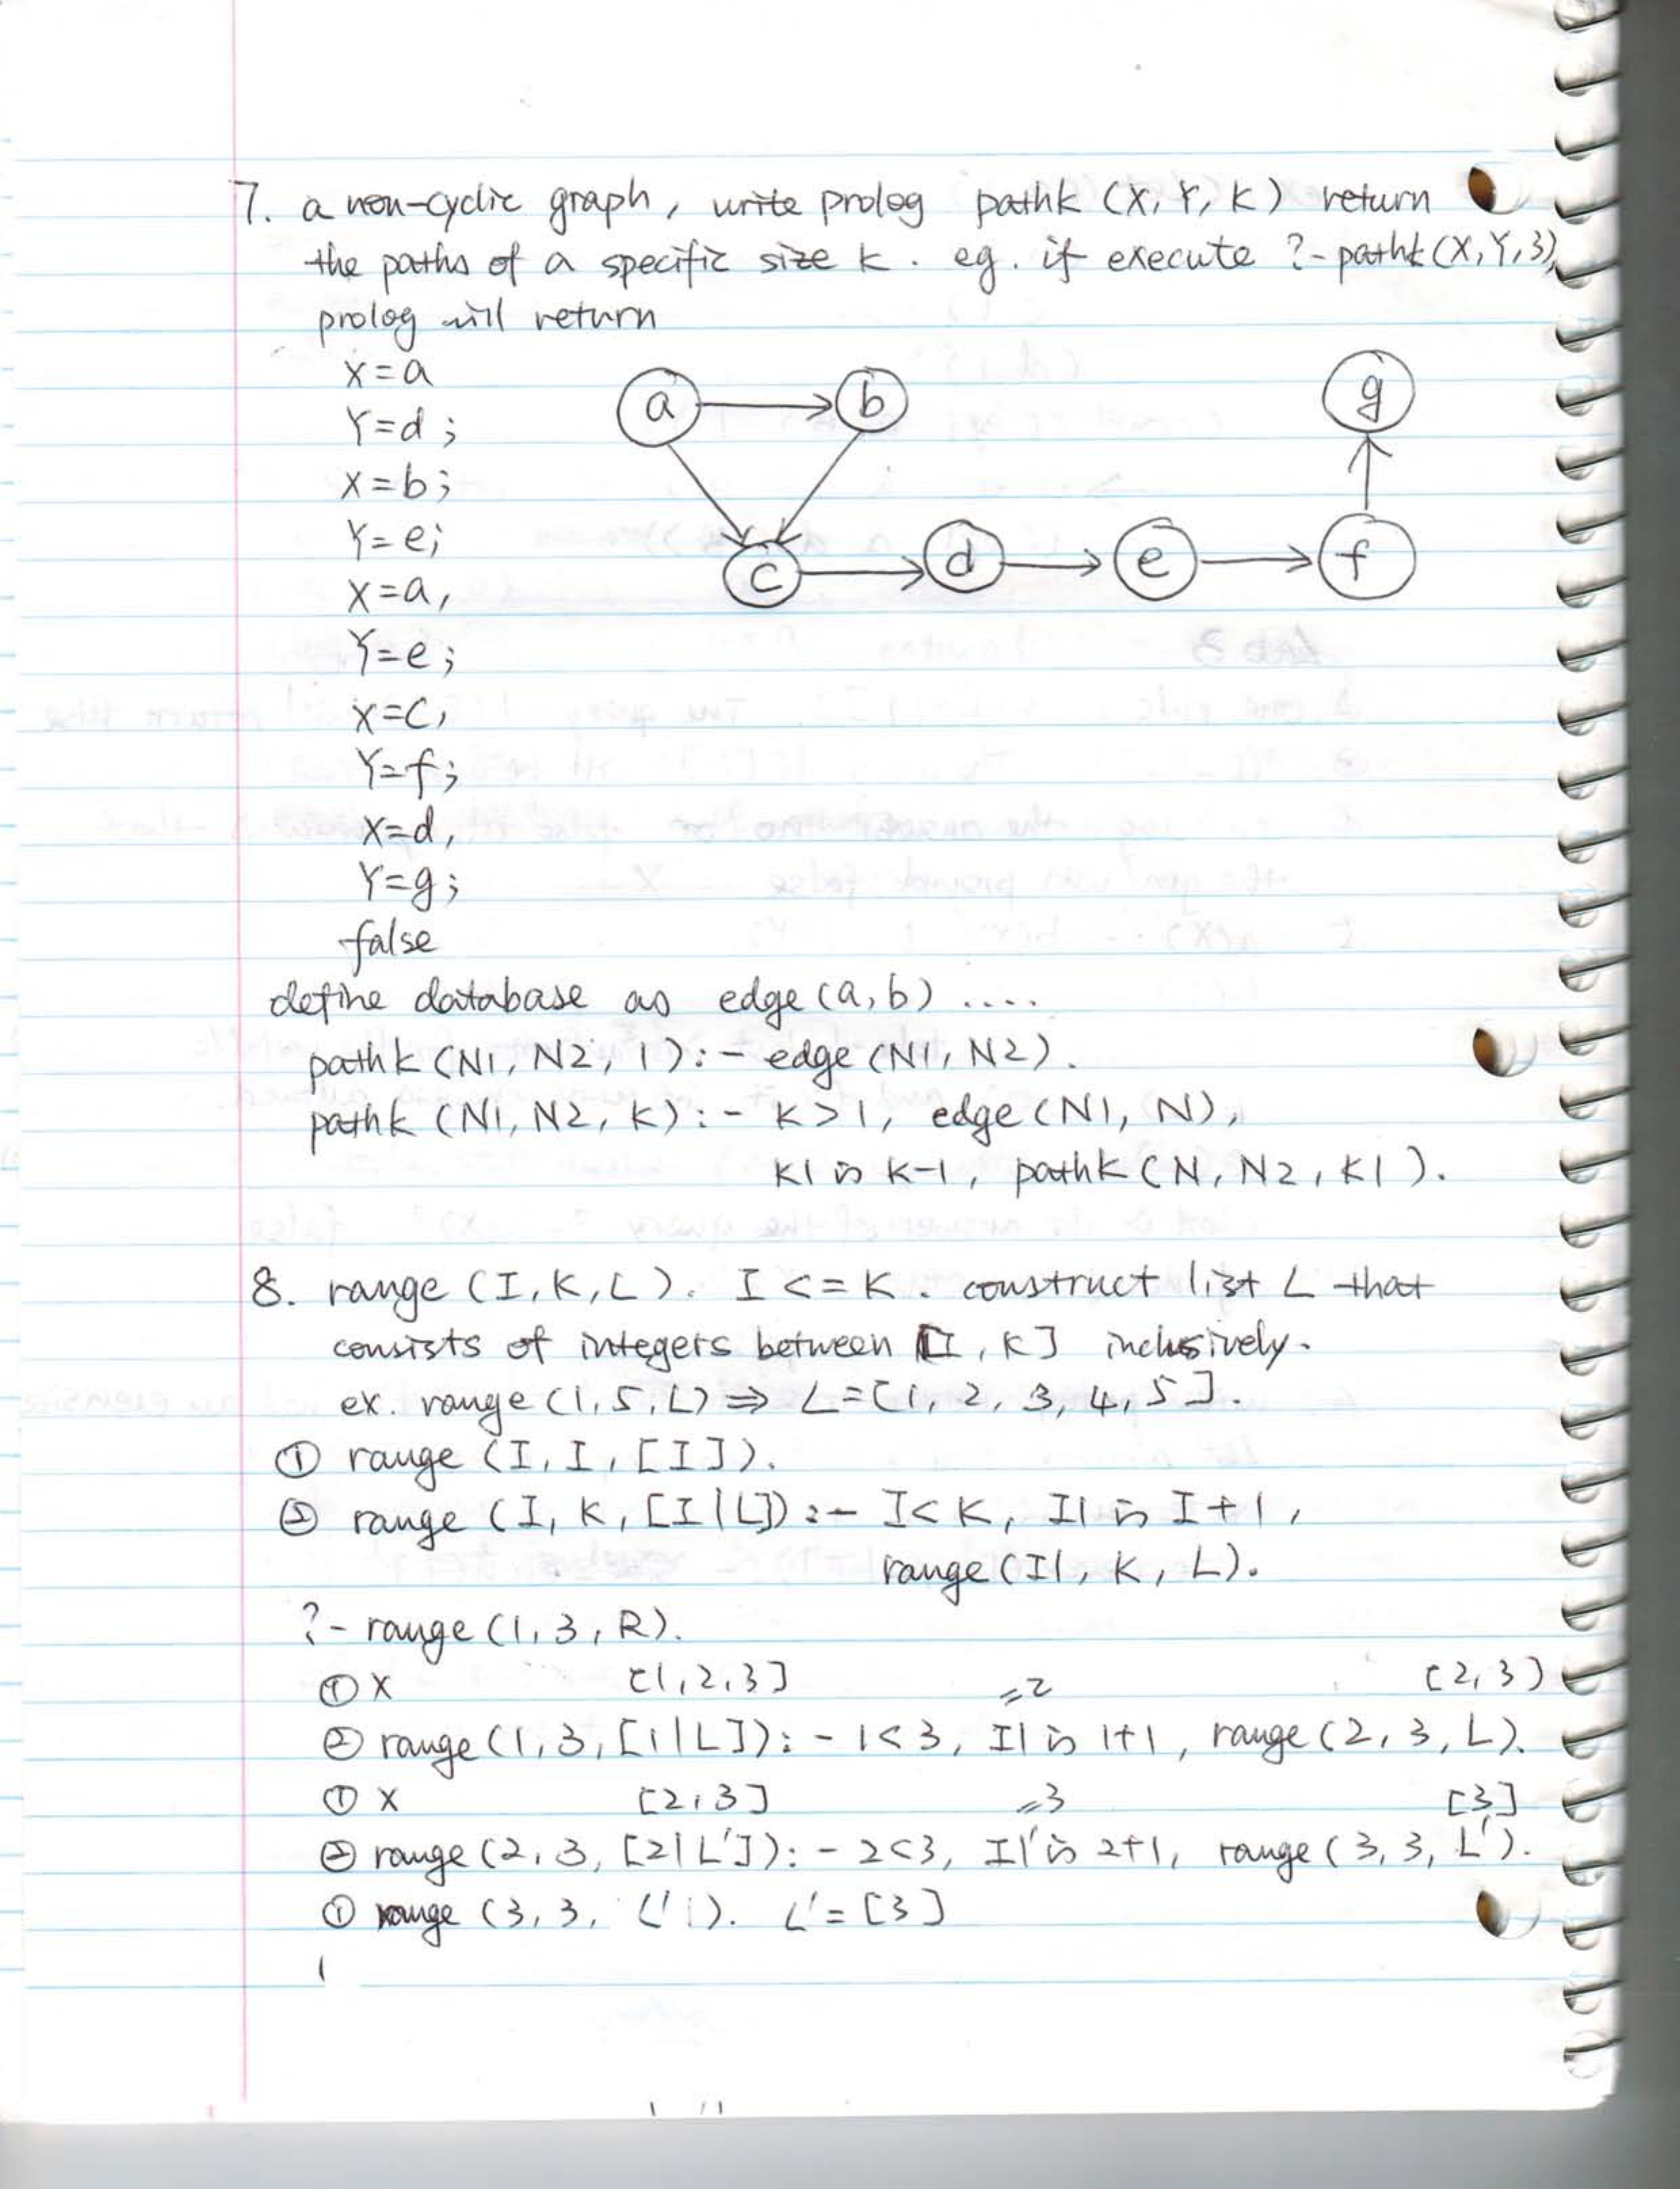 7. a non-cyclic graph, write prolog pathk (X, Y, K) return
the paths of a specific size k. eg. if execute ?- pathk (X, Y, 3),
prolog will return
X=a
Y=d;
X=b;
Y=e;
X=a,
Y=e;
X=c,
Y=f;
X=d,
Y=g;
false
a b g
c d e f
define database as edge (a, b) ....
pathk (N1, N2, 1):- edge (N1, N2).
pathk (N1, N2, K):- K>1, edge (N1, N),
K1 is K-1, pathk (N, N2, K1).
8. range (I, K, L). I <= K. construct list L that
consists of integers between [I, K] inclusively.
ex. range (1, 5, L) ⇒ L=[1, 2, 3, 4, 5].
① range (I, I, [I]).
② range (I, K, [I|L]) :- I<K, I1 is I+1,
range (I1, K, L).
?- range (1, 3, R).
① X [1, 2, 3] =2 [2, 3)
② range (1, 3, [1|L]):- 1<3, I1 is 1+1, range (2, 3, L).
① X [2, 3] =3 [3]
② range (2, 3, [2|L']):- 2<3, I1' is 2+1, range (3, 3, L').
① range (3, 3, L'). L' = [3]